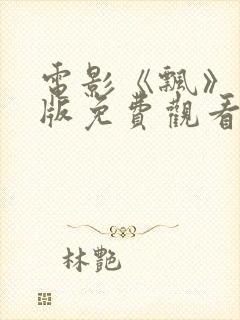 電影《飄》
版免費觀看
林艷